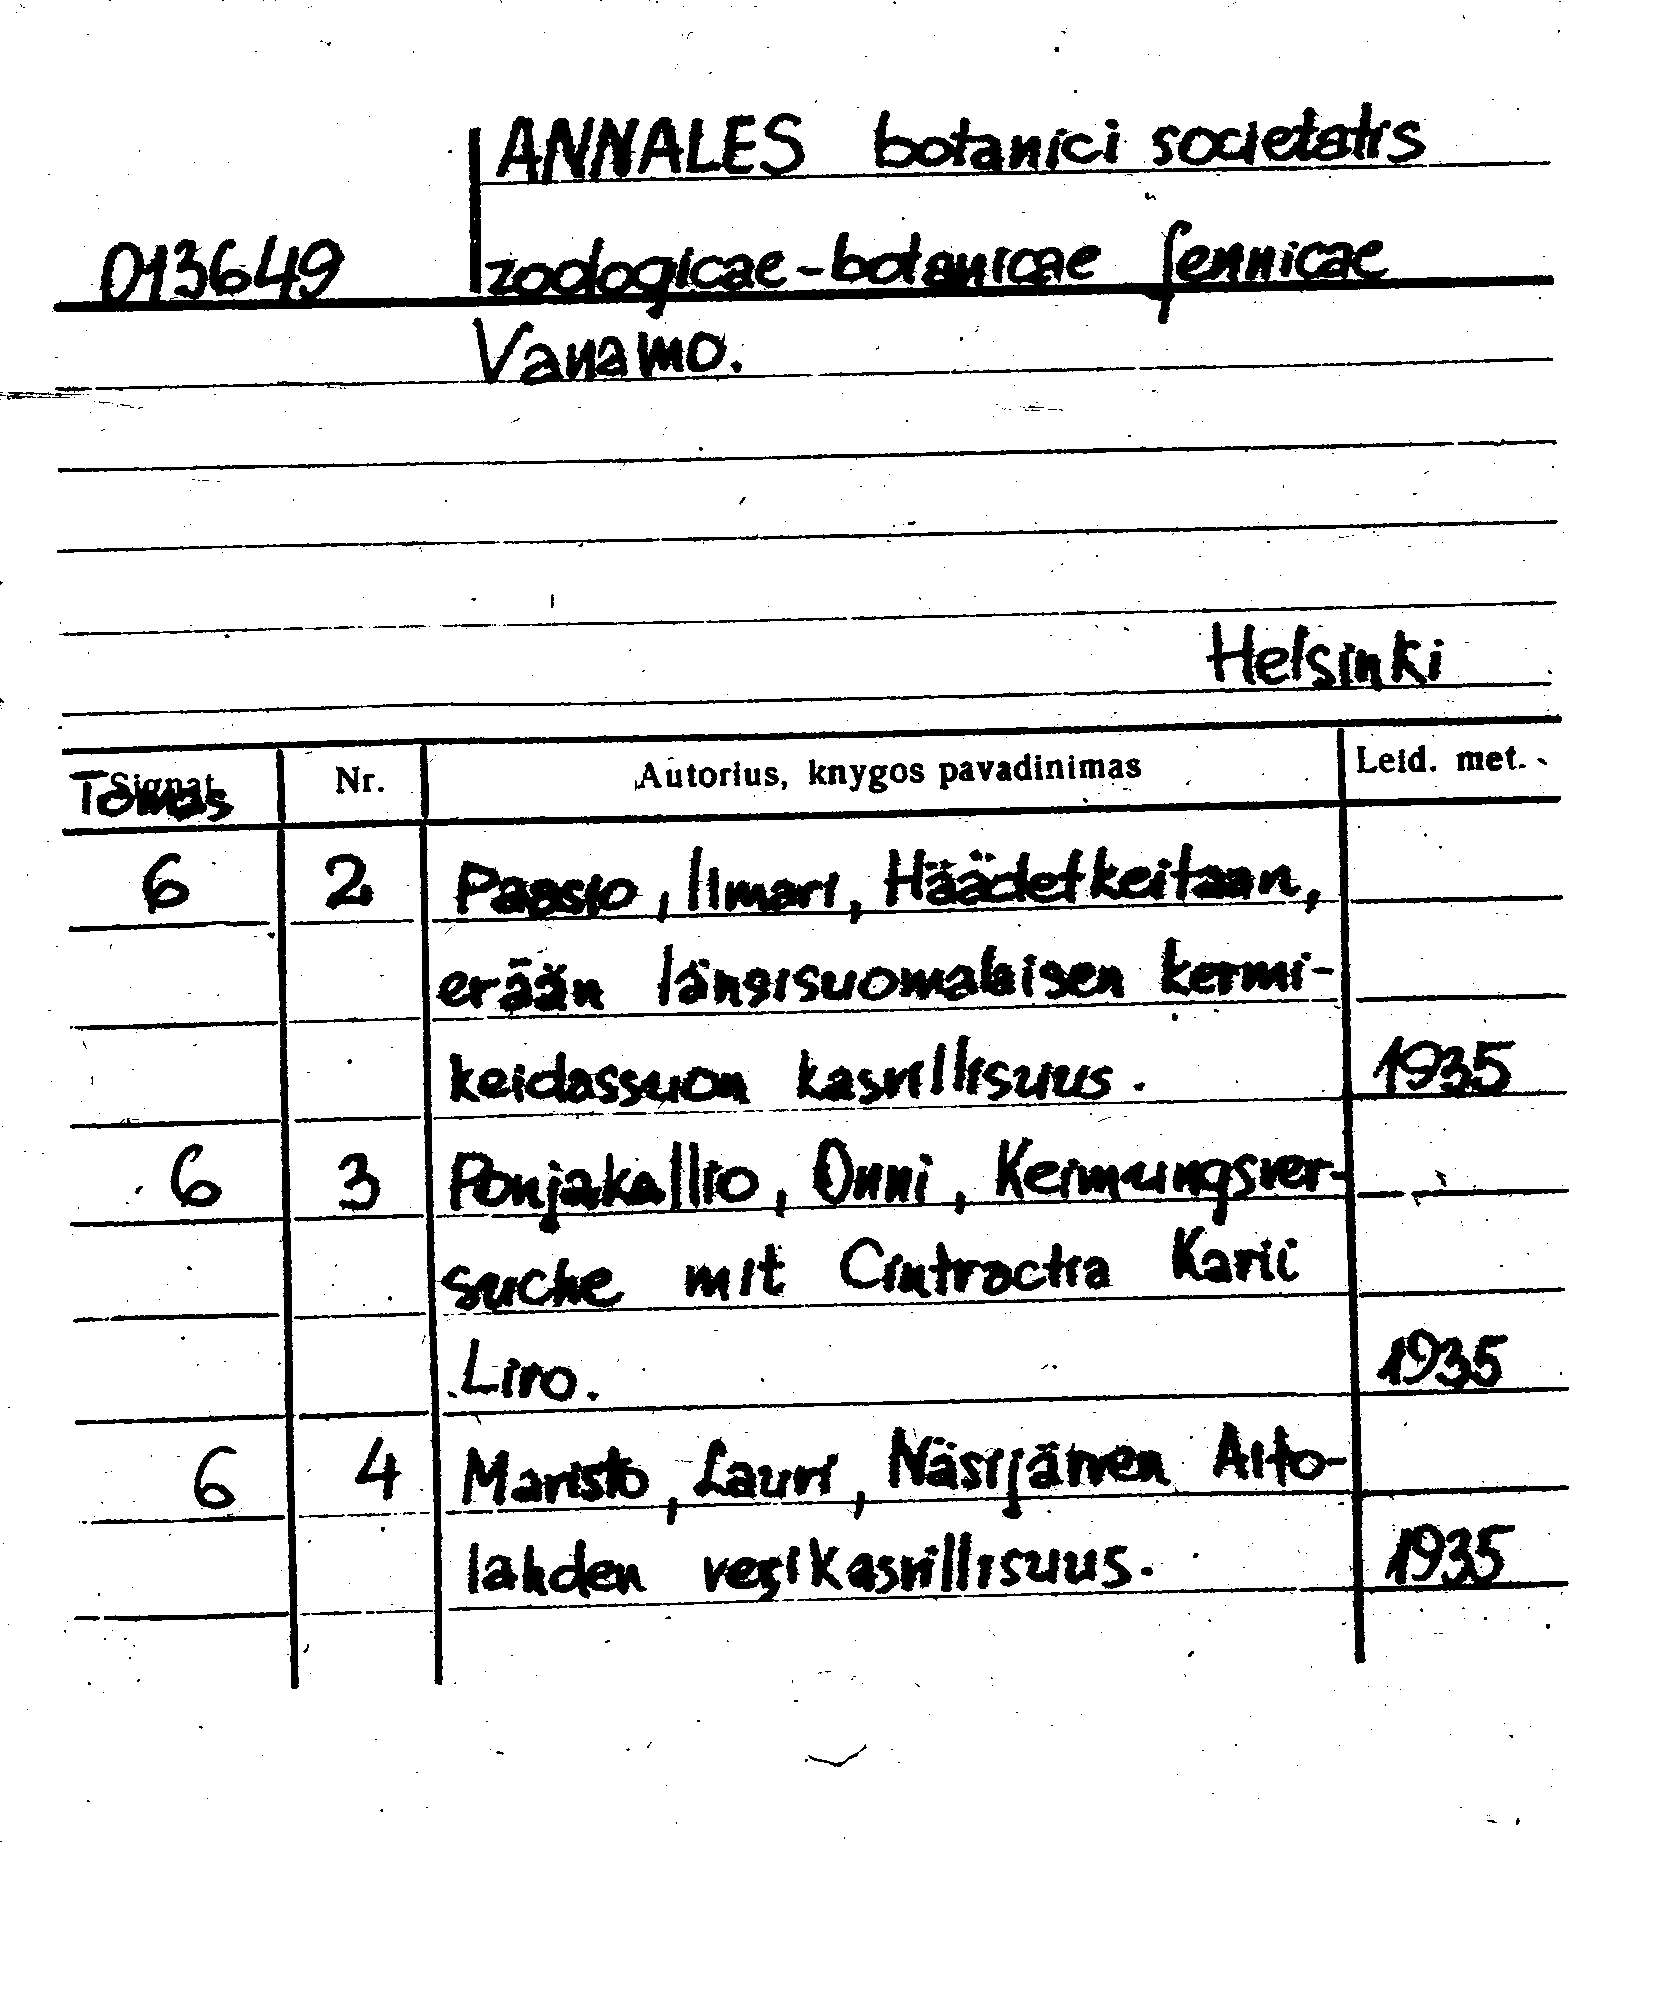 ANNALES botanici societatis
013649 zoologicae-botanicae fennicae
Vanamo.
Helsinki
Signat. Tomas Nr. Autorius, knygos pavadinimas Leid. met.
6 2 Paasio, Ilmari, Häädetkeitaan,
erään länsisuomalaisen kermi-
keidassuon kasvillisuus. 1935
6 3 Ponjakallio, Onni, Keimungsver-
suche mit Cintractia Karii
Liro. 1935
6 4 Maristo, Lauri, Näsijärven Aito-
lahden vesikasvillisuus. 1935